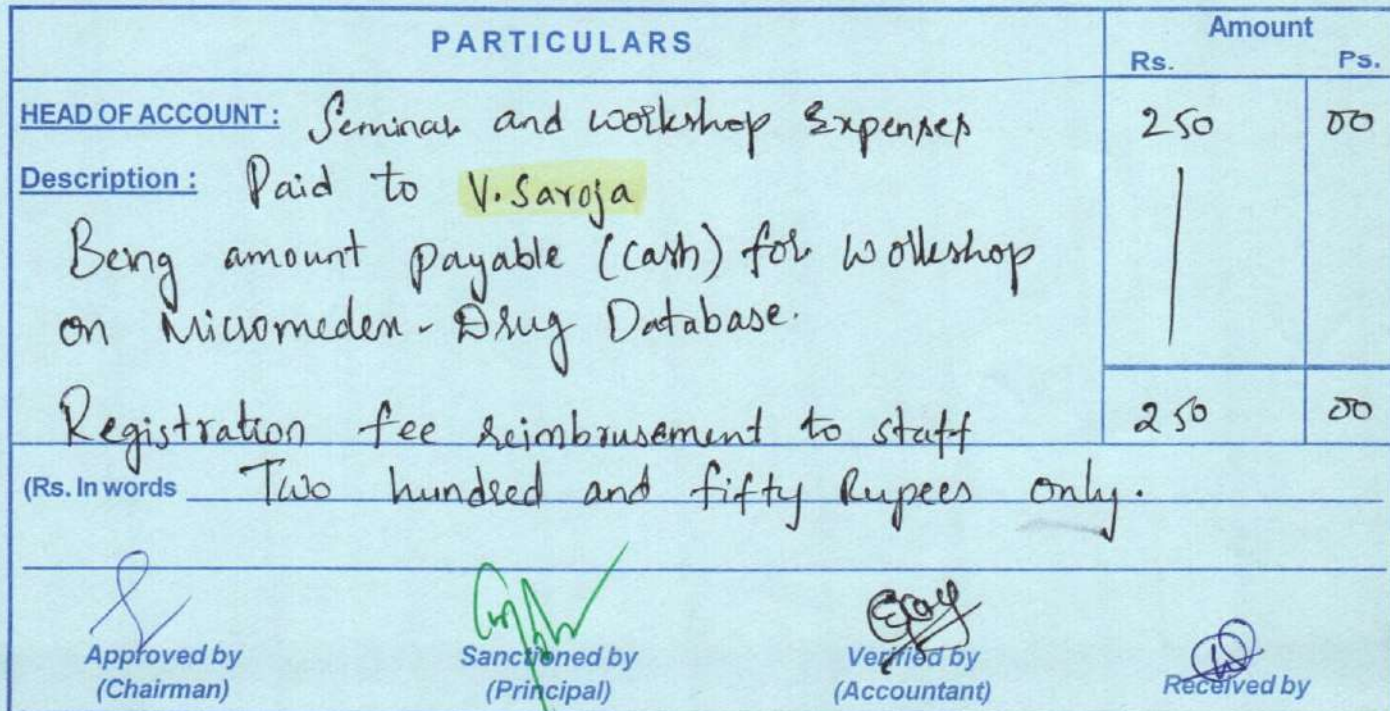 PARTICULARS
Amount
Rs. Ps.
HEAD OF ACCOUNT : Seminar and workshop Expenses 250 00
Description : Paid to V. Saroja
Being amount payable (cash) for workshop
on Micromedex - Drug Database.
Registration fee reimbrusement to staff 250 00
(Rs. In words Two hundred and fifty Rupees only.
Approved by Sanctioned by Verified by Received by
(Chairman) (Principal) (Accountant)